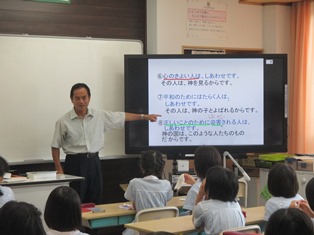 ⑥心のきよい人は、しあわせです。
その人は、神を見るからです。
⑦平和のためにはたらく人は、
しあわせです。
その人は、神の子とよばれるからです。
⑧正しいことのために迫害される人は、
しあわせです。
神の国は、このような人たちのもの
だからです。